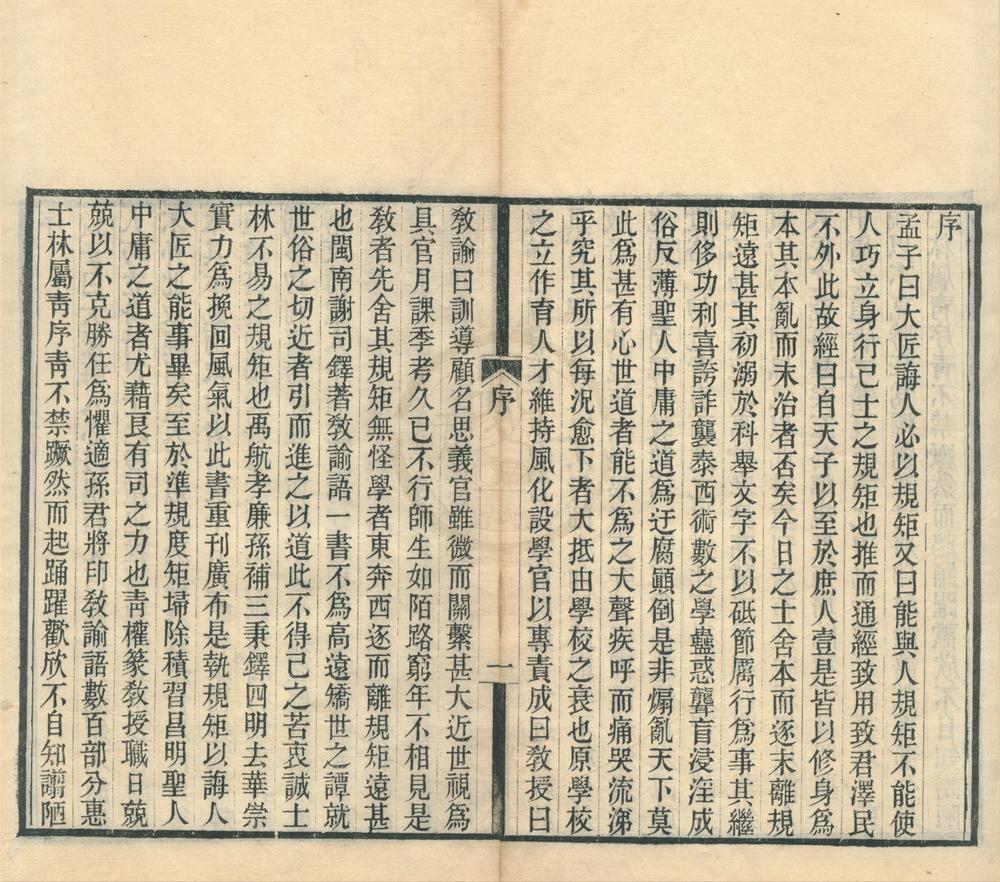 序
孟子曰大匠誨人必以規矩又曰能與人規矩不能使
人巧立身行己士之規矩也推而通經致用致君澤民
不外此故經曰自天子以至於庶人壹是皆以修身爲
本其本亂而末治者否矣今日之士舍本而逐末離規
矩遠甚其初溺於科舉文字不以砥節厲行爲事其繼
則侈功利喜誇詐襲泰西術數之學蠱惑聾盲浸淫成
俗反薄聖人中庸之道爲迂腐顚倒是非煽亂天下莫
此爲甚有心世道者能不爲之大聲疾呼而痛哭流涕
乎究其所以每況愈下者大抵由學校之衰也原學校
之立作育人才維持風化設學官以專責成曰敎授曰
序
一
敎諭曰訓導顧名思義官雖微而關繫甚大近世視爲
具官月課季考久已不行師生如陌路窮年不相見是
敎者先舍其規矩無怪學者東奔西逐而離規矩遠甚
也閩南謝司鐸著敎諭語一書不爲高遠矯世之譚就
世俗之切近者引而進之以道此不得已之苦衷誠士
林不易之規矩也禹航孝廉孫補三秉鐸四明去華崇
實力爲挽回風氣以此書重刊廣布是執規矩以誨人
大匠之能事畢矣至於準規度矩埽除積習昌明聖人
中庸之道者尤藉良有司之力也靑權篆敎授職日兢
兢以不克勝任爲懼適孫君將印敎諭語數百部分惠
士林屬靑序靑不禁蹶然而起踊躍歡欣不自知譾陋